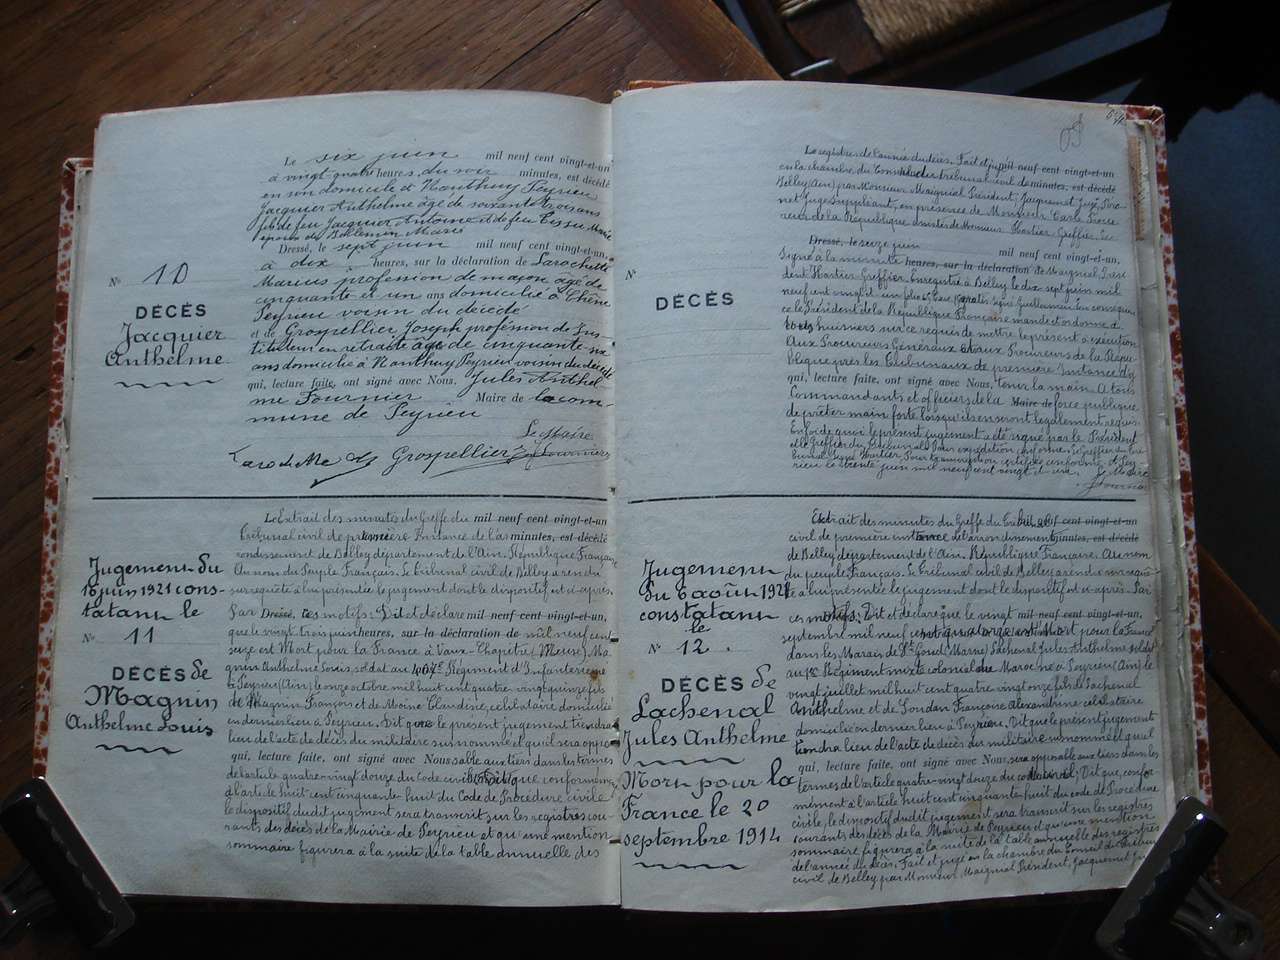 Le six juin mil neuf cent vingt-et-un
à vingt quatre heures du soir minutes, est décédé
en son domicile à Nanthuy Peyrieu
Jacquier Anthelme âgé de soixante trois ans
fils de feu Jacquier Antoine et de feu Tissu Marie
époux de Bellemin Marie
Dressé, le sept juin mil neuf cent vingt-et-un,
à dix heures, sur la déclaration de Larochette
Marius profession de maçon âgé de
cinquante et un ans domicilié à
Peyrieu voisin du décédé
et de Grospellier Joseph profession de Ins-
tituteur en retraite âgé de cinquante-six
ans domicilié à Nanthuy Peyrieu voisin du décédé
qui, lecture faite, ont signé avec Nous, Jules Anthel
me Fournier Maire de la com-
mune de Peyrieu
Le Maire
Grospellier JFournier
N° 10
DÉCÈS
Jacquier
Anthelme
Le Extrait des minutes du Greffe du mil neuf cent vingt-et-un
Tribunal civil de première Instance de l'ar minutes, est décédé
rondissement de Belley département de l'Ain. République Française
Au nom du Peuple Français. Le Tribunal civil de Belley a rendu
sur requête à lui présentée le jugement dont le dispositif est ci-après.
Par Dressé, le ces motifs: Dit et déclare mil neuf cent vingt-et-un,
que le vingt trois juin heures, sur la déclaration de mil neuf cent
seize est Mort pour la France à Vaux-Chapitre, (Meuse) Ma-
gnin Anthelme Louis, soldat au 407e Régiment d'Infanterie né
à Peyrieu (Ain) le onze octobre mil huit cent quatre vingt quinze fils
de Magnin François et de Moine Claudine, célibataire domicilié
en dernier lieu à Peyrieu. Dit que le présent jugement tiendra
lieu de l'acte de décès du militaire susnommé et qu'il sera oppo
qui, lecture faite, ont signé avec Nous sable aux tiers dans les termes
de l'article quatre-vingt douze du Code civil Dit que conformém
à l'article huit cent cinquante huit du Code de Procédure civile
le dispositif dudit jugement sera transcrit sur les registres cou-
rants des décès de la Mairie de Peyrieu et qu'une mention
sommaire figurera à la suite de la table annuelle des
Jugement du
16 juin 1921 cons-
tatant le
N° 11
DÉCÈS de
Magnin
Anthelme Louis
Le registre de l'année du décès. Fait et jugé mil neuf cent vingt-et-un
en la chambre du Conseil du tribunal civil de minutes, est décédé
Belley (Ain) par Monsieur Maignial Président, Jacquemet Juge,
net Juge Suppléant, en présence de Monsieur Procu
reur de la République assistés de Monsieur Hortier Greffier.
Dressé, le seize juin mil neuf cent vingt-et-un,
Signé à la minute heures, sur la déclaration de Maignial Prési
dent Hortier Greffier. Enregistré à Belley le dix sept juin mil
neuf cent vingt et un Signé Guillemin. En conséquen
ce le Président de la République Française mande et ordonne à
tous huissiers sur ce requis de mettre le présent à exécution
Aux Procureurs Généraux et aux Procureurs de la Répu-
blique près les Tribunaux de première Instance d'y
qui, lecture faite, ont signé avec Nous, tenir la main. A tous
Commandants et officiers de la Maire de force publique
de prêter main forte lorsqu'ils en seront légalement requis.
En foi de quoi le présent jugement a été signé par le Président
et le Greffier du Tribunal. Pour expédition conforme. Le Greffier du Tri-
bunal Signé Hortier. Pour transcription certifiée conforme à Pey
rieu le trente juin mil neuf cent vingt et un. Le Maire
JFournier
N°
DÉCÈS
Extrait des minutes du Greffe du Tribunal mil neuf cent vingt-et-un
civil de première instance de l'arrondissement minutes, est décédé
de Belley, département de l'Ain. République Française. Au nom
du peuple Français. Le Tribunal civil de Belley, a rendu sur requê-
te à lui présentée le jugement dont le dispositif est ci-après. Par
ces motifs: Dit et déclare que le vingt mil neuf cent vingt-et-un,
septembre mil neuf cent quatorze est Mort pour la France
dans les Marais de St Gond (Marne) Lachenal Jules Anthelme soldat
au Régiment mixte colonial du Maroc né à Peyrieu (Ain) le
vingt juillet mil huit cent quatre vingt onze fils de Lachenal
Anthelme et de Goudan Françoise Alexandrine célibataire
domicilié en dernier lieu à Peyrieu. Dit que le présent jugement
tiendra lieu de l'acte de décès du militaire susnommé et qu'il
qui, lecture faite, ont signé avec Nous, sera opposable aux tiers dans les
termes de l'article quatre-vingt douze du code civil; Dit que, confor
mément à l'article huit cent cinquante huit du code de Procédure
civile, le dispositif dudit jugement sera transcrit sur les registres
courants des décès de la Mairie de Peyrieu et qu'une mention
sommaire figurera à la suite de la table annuelle des registres
de l'année du décès. Fait et jugé en la chambre du Conseil du Tribunal
civil de Belley, par Monsieur Maignial Président, Jacquemet
Jugement
du 6 août 1921
constatant
le
N° 12.
DÉCÈS de
Lachenal
Jules Anthelme
Mort pour la
France le 20
septembre 1914